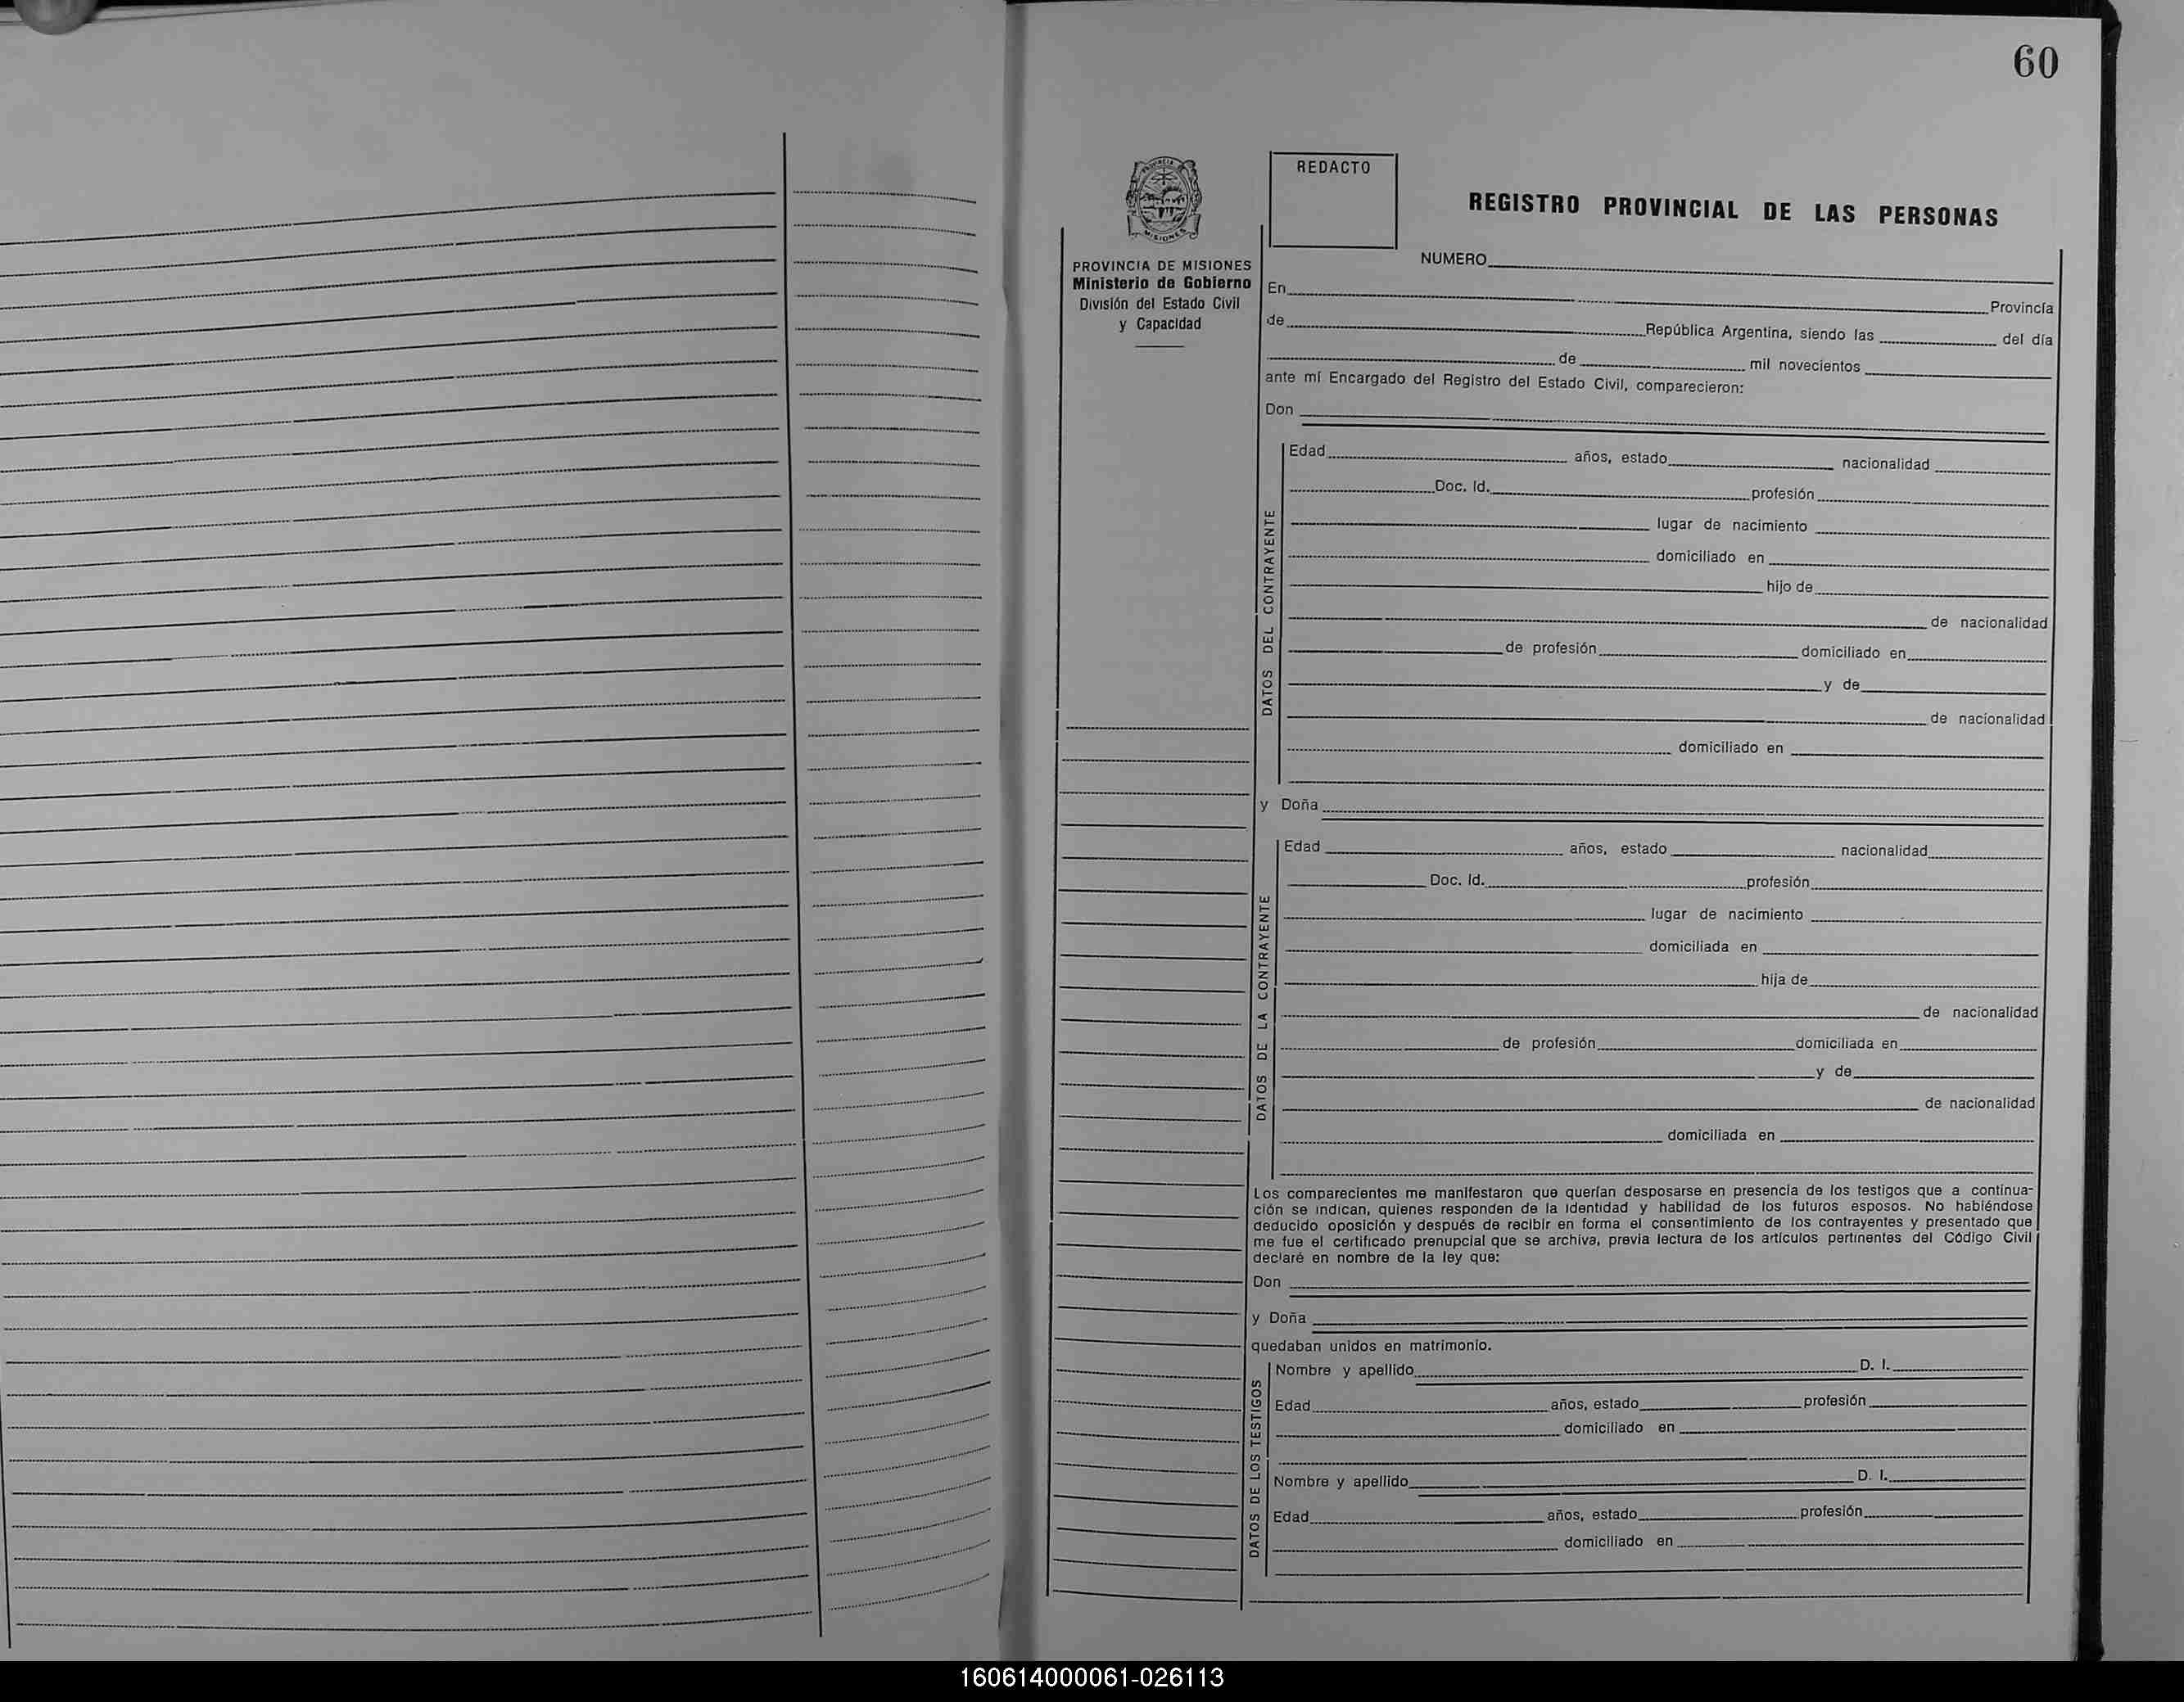 60
PROVINCIA
MISIONES
REDACTO
REGISTRO PROVINCIAL DE LAS PERSONAS
PROVINCIA DE MISIONES
Ministerio de Gobierno
División del Estado Civil
y Capacidad
NUMERO
En Provincia
de República Argentina, siendo las del día
de mil novecientos
ante mí Encargado del Registro del Estado Civil, comparecieron:
Don
DATOS DEL CONTRAYENTE
Edad años, estado nacionalidad
Doc. Id. profesión
lugar de nacimiento
domiciliado en
hijo de
de nacionalidad
de profesión domiciliado en
y de
de nacionalidad
domiciliado en
y Doña
DATOS DE LA CONTRAYENTE
Edad años, estado nacionalidad
Doc. Id. profesión
lugar de nacimiento
domiciliada en
hija de
de nacionalidad
de profesión domiciliada en
y de
de nacionalidad
domiciliada en
Los comparecientes me manifestaron que querían desposarse en presencia de los testigos que a continua-
ción se indican, quienes responden de la identidad y habilidad de los futuros esposos. No habiéndose
deducido oposición y después de recibir en forma el consentimiento de los contrayentes y presentado que
me fue el certificado prenupcial que se archiva, previa lectura de los artículos pertinentes del Código Civil
declaré en nombre de la ley que:
Don
y Doña
quedaban unidos en matrimonio.
DATOS DE LOS TESTIGOS
Nombre y apellido D. I.
Edad años, estado profesión
domiciliado en
Nombre y apellido D. I.
Edad años, estado profesión
domiciliado en
160614000061-026113